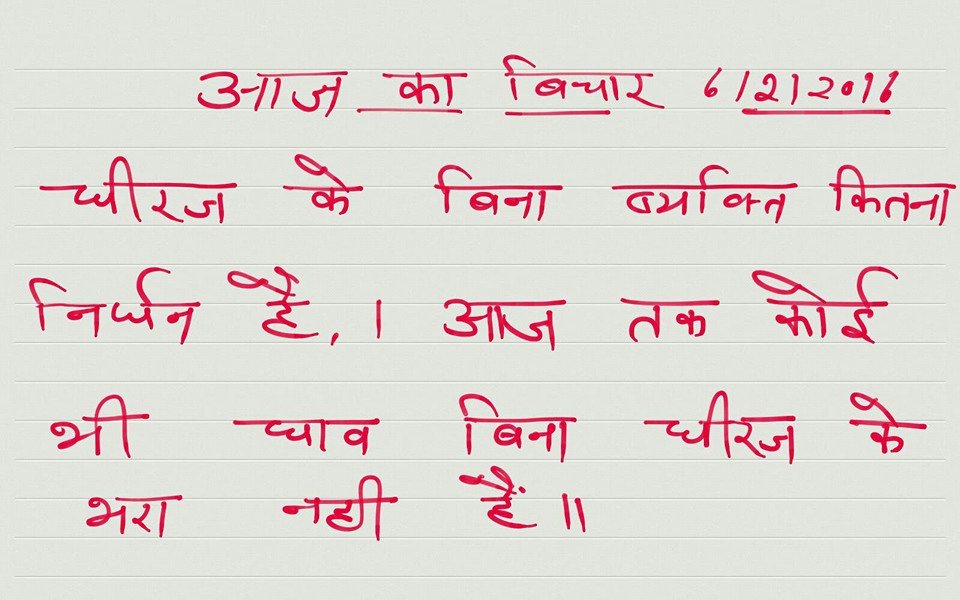 आज का बिचार 6/2/2016
धीरज के बिना ब्यक्ति कितना
निर्धन है, । आज तक कोई
भी घाव बिना धीरज के
भरा नही हैं ॥